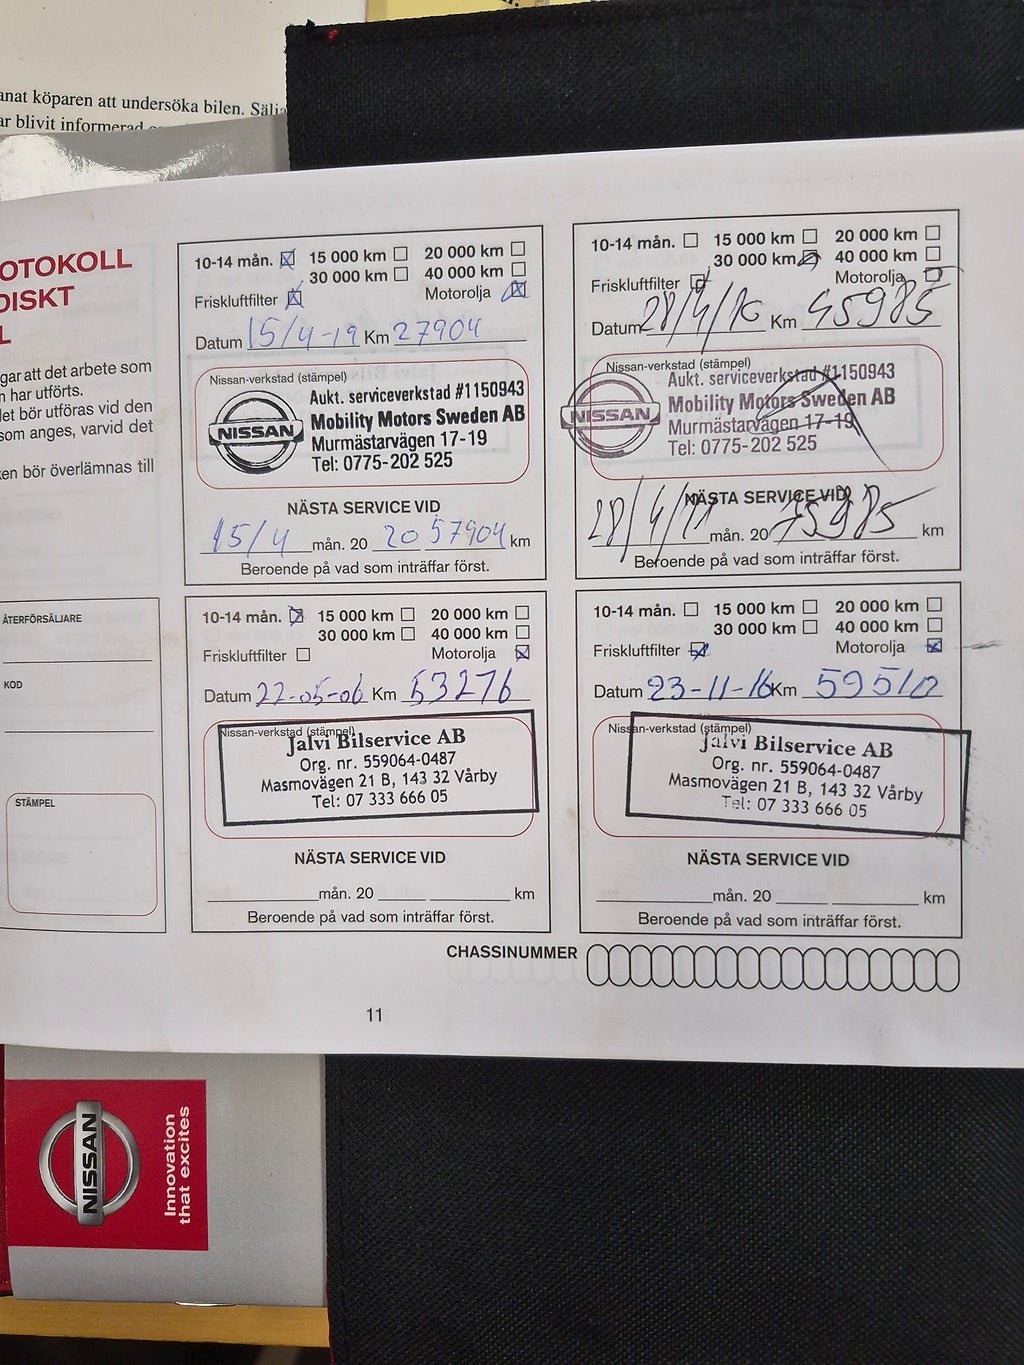 anat köparen att undersöka bilen. Sälja
ar blivit informerad
OTOKOLL
DISKT
L
gar att det arbete som
n har utförts.
let bör utföras vid den
som anges, varvid det
ken bör överlämnas till
ÅTERFÖRSÄLJARE
KOD
STÄMPEL
10-14 mån. 15 000 km 20 000 km
30 000 km 40 000 km
Friskluftfilter Motorolja
Datum 15/4-19 Km 27904
Nissan-verkstad (stämpel)
NISSAN
Aukt. serviceverkstad #1150943
Mobility Motors Sweden AB
Murmästarvägen 17-19
Tel: 0775-202 525
NÄSTA SERVICE VID
15/4 mån. 20 20 57904 km
Beroende på vad som inträffar först.
10-14 mån. 15 000 km 20 000 km
30 000 km 40 000 km
Friskluftfilter Motorolja
Datum 28/4/16 Km 45985
Nissan-verkstad (stämpel)
NISSAN
Aukt. serviceverkstad #1150943
Mobility Motors Sweden AB
Murmästarvägen 17-19
Tel: 0775-202 525
NÄSTA SERVICE VID
28/4/ mån. 20 75985 km
Beroende på vad som inträffar först.
10-14 mån. 15 000 km 20 000 km
30 000 km 40 000 km
Friskluftfilter Motorolja
Datum 22-05-06 Km 53276
Nissan-verkstad (stämpel)
Jalvi Bilservice AB
Org. nr. 559064-0487
Masmovägen 21 B, 143 32 Vårby
Tel: 07 333 666 05
NÄSTA SERVICE VID
mån. 20 km
Beroende på vad som inträffar först.
10-14 mån. 15 000 km 20 000 km
30 000 km 40 000 km
Friskluftfilter Motorolja
Datum 23-11-16 Km 59510
Nissan-verkstad (stämpel)
Jalvi Bilservice AB
Org. nr. 559064-0487
Masmovägen 21 B, 143 32 Vårby
Tel: 07 333 666 05
NÄSTA SERVICE VID
mån. 20 km
Beroende på vad som inträffar först.
CHASSINUMMER
11
NISSAN
Innovation
that excites